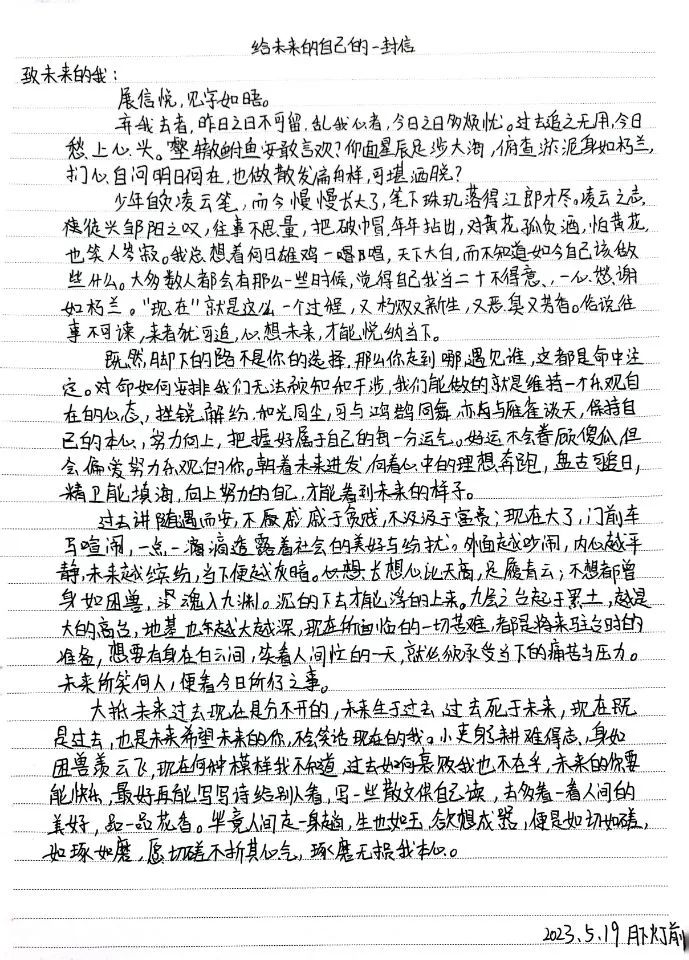 给未来的自己的一封信
致未来的我：
展信悦，见字如晤。
弃我去者，昨日之日不可留，乱我心者，今日之日多烦忧。过去追之无用，今日
愁上心头。擊辙鲋鱼安敢言欢？仰面星辰足涉大海，俯查淤泥身如朽兰，
扪心自问明日何在，也做散发扁舟样，可堪洒脱？
少年自负凌云笔，而今慢慢长大了，笔下珠玑落得江郎才尽。凌云之志，
徒兴邹阳之叹，往事不思量，把破帽年年拈出，对黄花孤负酒，怕黄花
也笑人岑寂。我总想着何日雄鸡一唱，天下大白，而不知道如今自己该做
些什么。大多数人都会有那么一些时候，觉得自己我当二十不得意、一心愁谢
如枯兰。“现在”就是这么一个过程，又朽败又新生，又恶臭又芳香。俗说往
事不可谏，来者犹可追，心想未来，才能悦纳当下。
既然脚下的路不是你的选择，那么你走到哪，遇见谁，这都是命中注
定。对命如何安排我们无法预知和干涉，我们能做的就是维持一个乐观自
在的心态、挫锐解纷，和光同尘，可与鸿鹄同舞，亦有与雁雀谈天，保持自
己的本心，努力向上，把握好属于自己的每一分运气。好运不会眷顾傻瓜，但
会偏爱努力乐观的你。朝着未来进发，向着心中的理想奔跑，盘古可追日，
精卫能填海，向上努力的自己，才能看到未来的样子。
过去讲随遇而安，不戚戚于贫贱，不汲汲于富贵；现在大了，门前车
马喧闹，一点一滴滴透露着社会的美好与纷扰。外面越吵闹，内心越平
静，未来越缤纷，当下便越灰暗。心想长想心比天高，足履青云；不想都曾
身如困兽，魂入九渊。沉的下去才能浮的上来。九层之台起于累土，越是
大的高台，地基也每越大越深，现在所面临的一切苦难，都是将来驻台时的
准备，想要有身在白云间，笑看人间忙的一天，就必须承受当下的痛苦与压力。
未来所笑何人，便看今日所行之事。
大抵未来过去现在是分不开的，未来生于过去，过去死于未来，现在既
是过去，也是未来希望未来的你，不会笑话现在的我。小吏躬耕难得志，身如
困兽羡云飞，现在何种模样我不知道，过去如何衰败我也不在乎，未来的你要
能快乐，最好再能写写诗给别人看，写一些散文供自己读，去多看一看人间的
美好，品一品花香。毕竟人间走一趟，生也如玉，欲想成器，便是如切如磋，
如琢如磨，愿切磋不折其心气，琢磨无损我本心。
2023.5.19 月下灯前